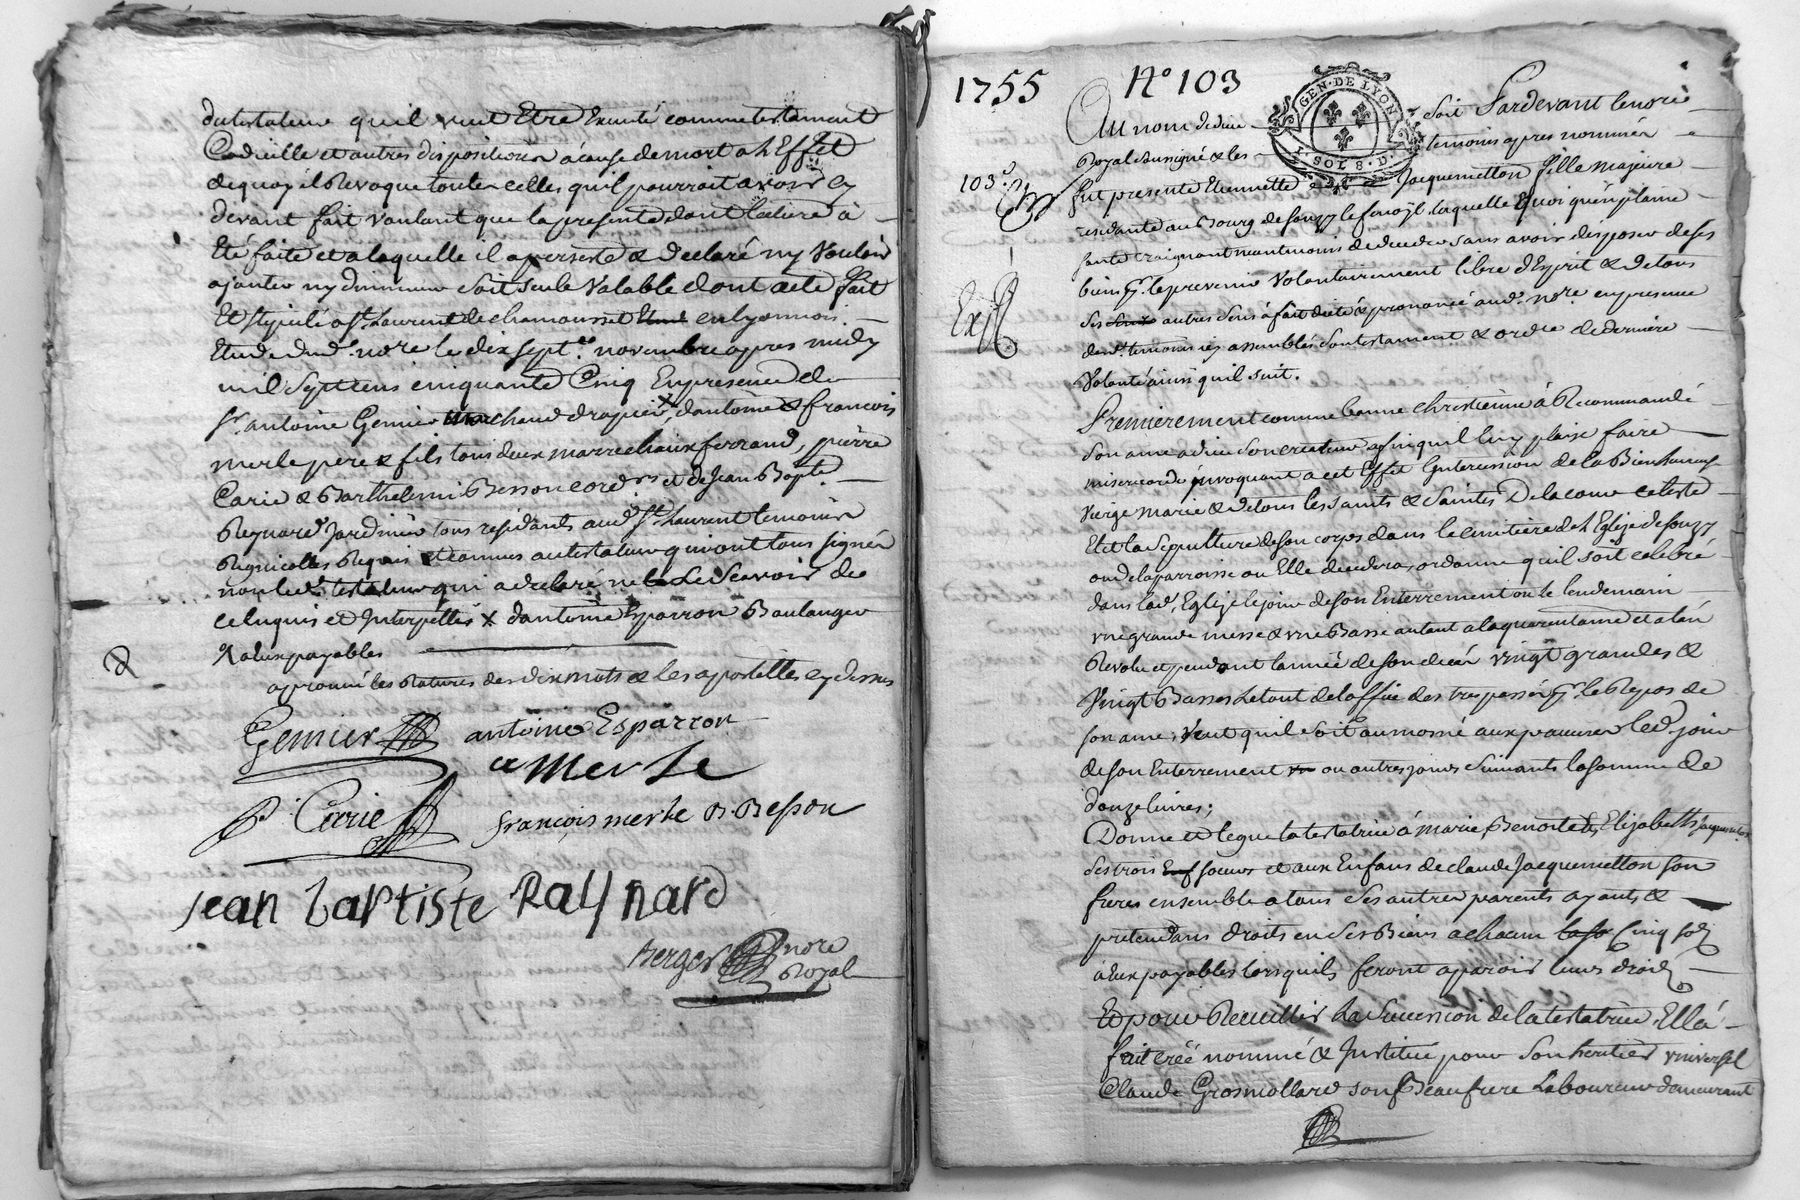 du testateur quil veut Etre Executé comme testament
Codicille et autres dispositions à cause de mort a L Effet
de quoy il Revoque toutes celles quil pourroit avoir cy
devant fait voulant que la presente dont lecture à
Eté faite et a laquelle il a persisté & declaré ny vouloir
ajouter ny diminuer soit seule valable dont acte fait
Et stipulé a St. Laurent de chamousset en lyonnois
Etude dud. nore le dix sept.e novembre apres midy
mil sept cens cinquante Cinq En presence de
Sr. antoine Gemier marchand drapier, x dantoine & francois
merle pere & fils tous deux marrechaux ferrand, pierre
Carie & Barthelemi Besson cord.rs et de Jean Bapt.e
Reynard Jardinier tous residants aud. St. Laurent temoins
Regnicolles Requis et connus au testateur qui ont tous signés
non led. testateur qui a declaré ne le Scavoir de
ce Enquis et Interpellés x dantoine Esparron Boulanger
& a eux payables
aprouvé les Ratures des dix mots & les apostilles cy dessus
Gemier antoine Esparron
a merle
P. Carie françois merle B. Besson
jean baptiste Raynard
Berger nore
Royal
1755 N.º 103
GEN. DE LYON
SOLS. D.
Au nom de dieu soit Pardevant le nore
Royal soussigné & les temoins apres nommés
103.e
fut presente Etiennette Jacquemetton fille majeure
residante au Bourg de Souzy le laquelle quoi quen plaine
santé craignant neantmoins de deceder sans avoir disposer de ses
biens pr. le prevenir volontairement libre d'Esprit & de tous
Exp
ses autres sens à fait dicté & prononcé aud. nore en presence
desd. temoins icy assemblés son testament & ordre de derniere
volonté ainsi quil suit.
Premierement comme bonne chrestienne à Recommandé
son ame a dieu son createur afin quil luy plaise faire
misericorde invoquant a cet Effet Lintercession de la Bienheureuse
vierge marie & de tous les saints & Saintes De la cour celeste
Elit la sepulture de son corps dans le cimitière de L Eglize de Souzy
ou de la parroisse ou Elle decedera, ordonne quil soit celebré
dans lad. Eglize le jour de son Enterrement ou le lendemain
vne grande messe & vne Basse autant a la quarentaine et a lan
Revolu et pendant lannée de son decés vingt grandes &
vingt Basses Le tout de loffice des trespassés pr. le Repos de
son ame, veut quil soit aumosné aux pauvres led. jour
de son Enterrement ou autres jours suivants la somme de
douze livres;
Donne et legue la testatrice à marie Benoite & Elizabeth Jacquemetton
ses trois soeurs et aux Enfans de claude Jacquemetton son
frere ensemble a tous ses autres parents ayants &
pretendans droits en ses Biens a chacun Cinq sols
à Eux payables lorsquils feront aparoir leurs droits
Et pour Recuillir La Succession de la testatrice Elle à
fait créé nommé & Institué pour son heritier vniversel
Claude Grosmollard son Beaufrere Laboureur demeurant